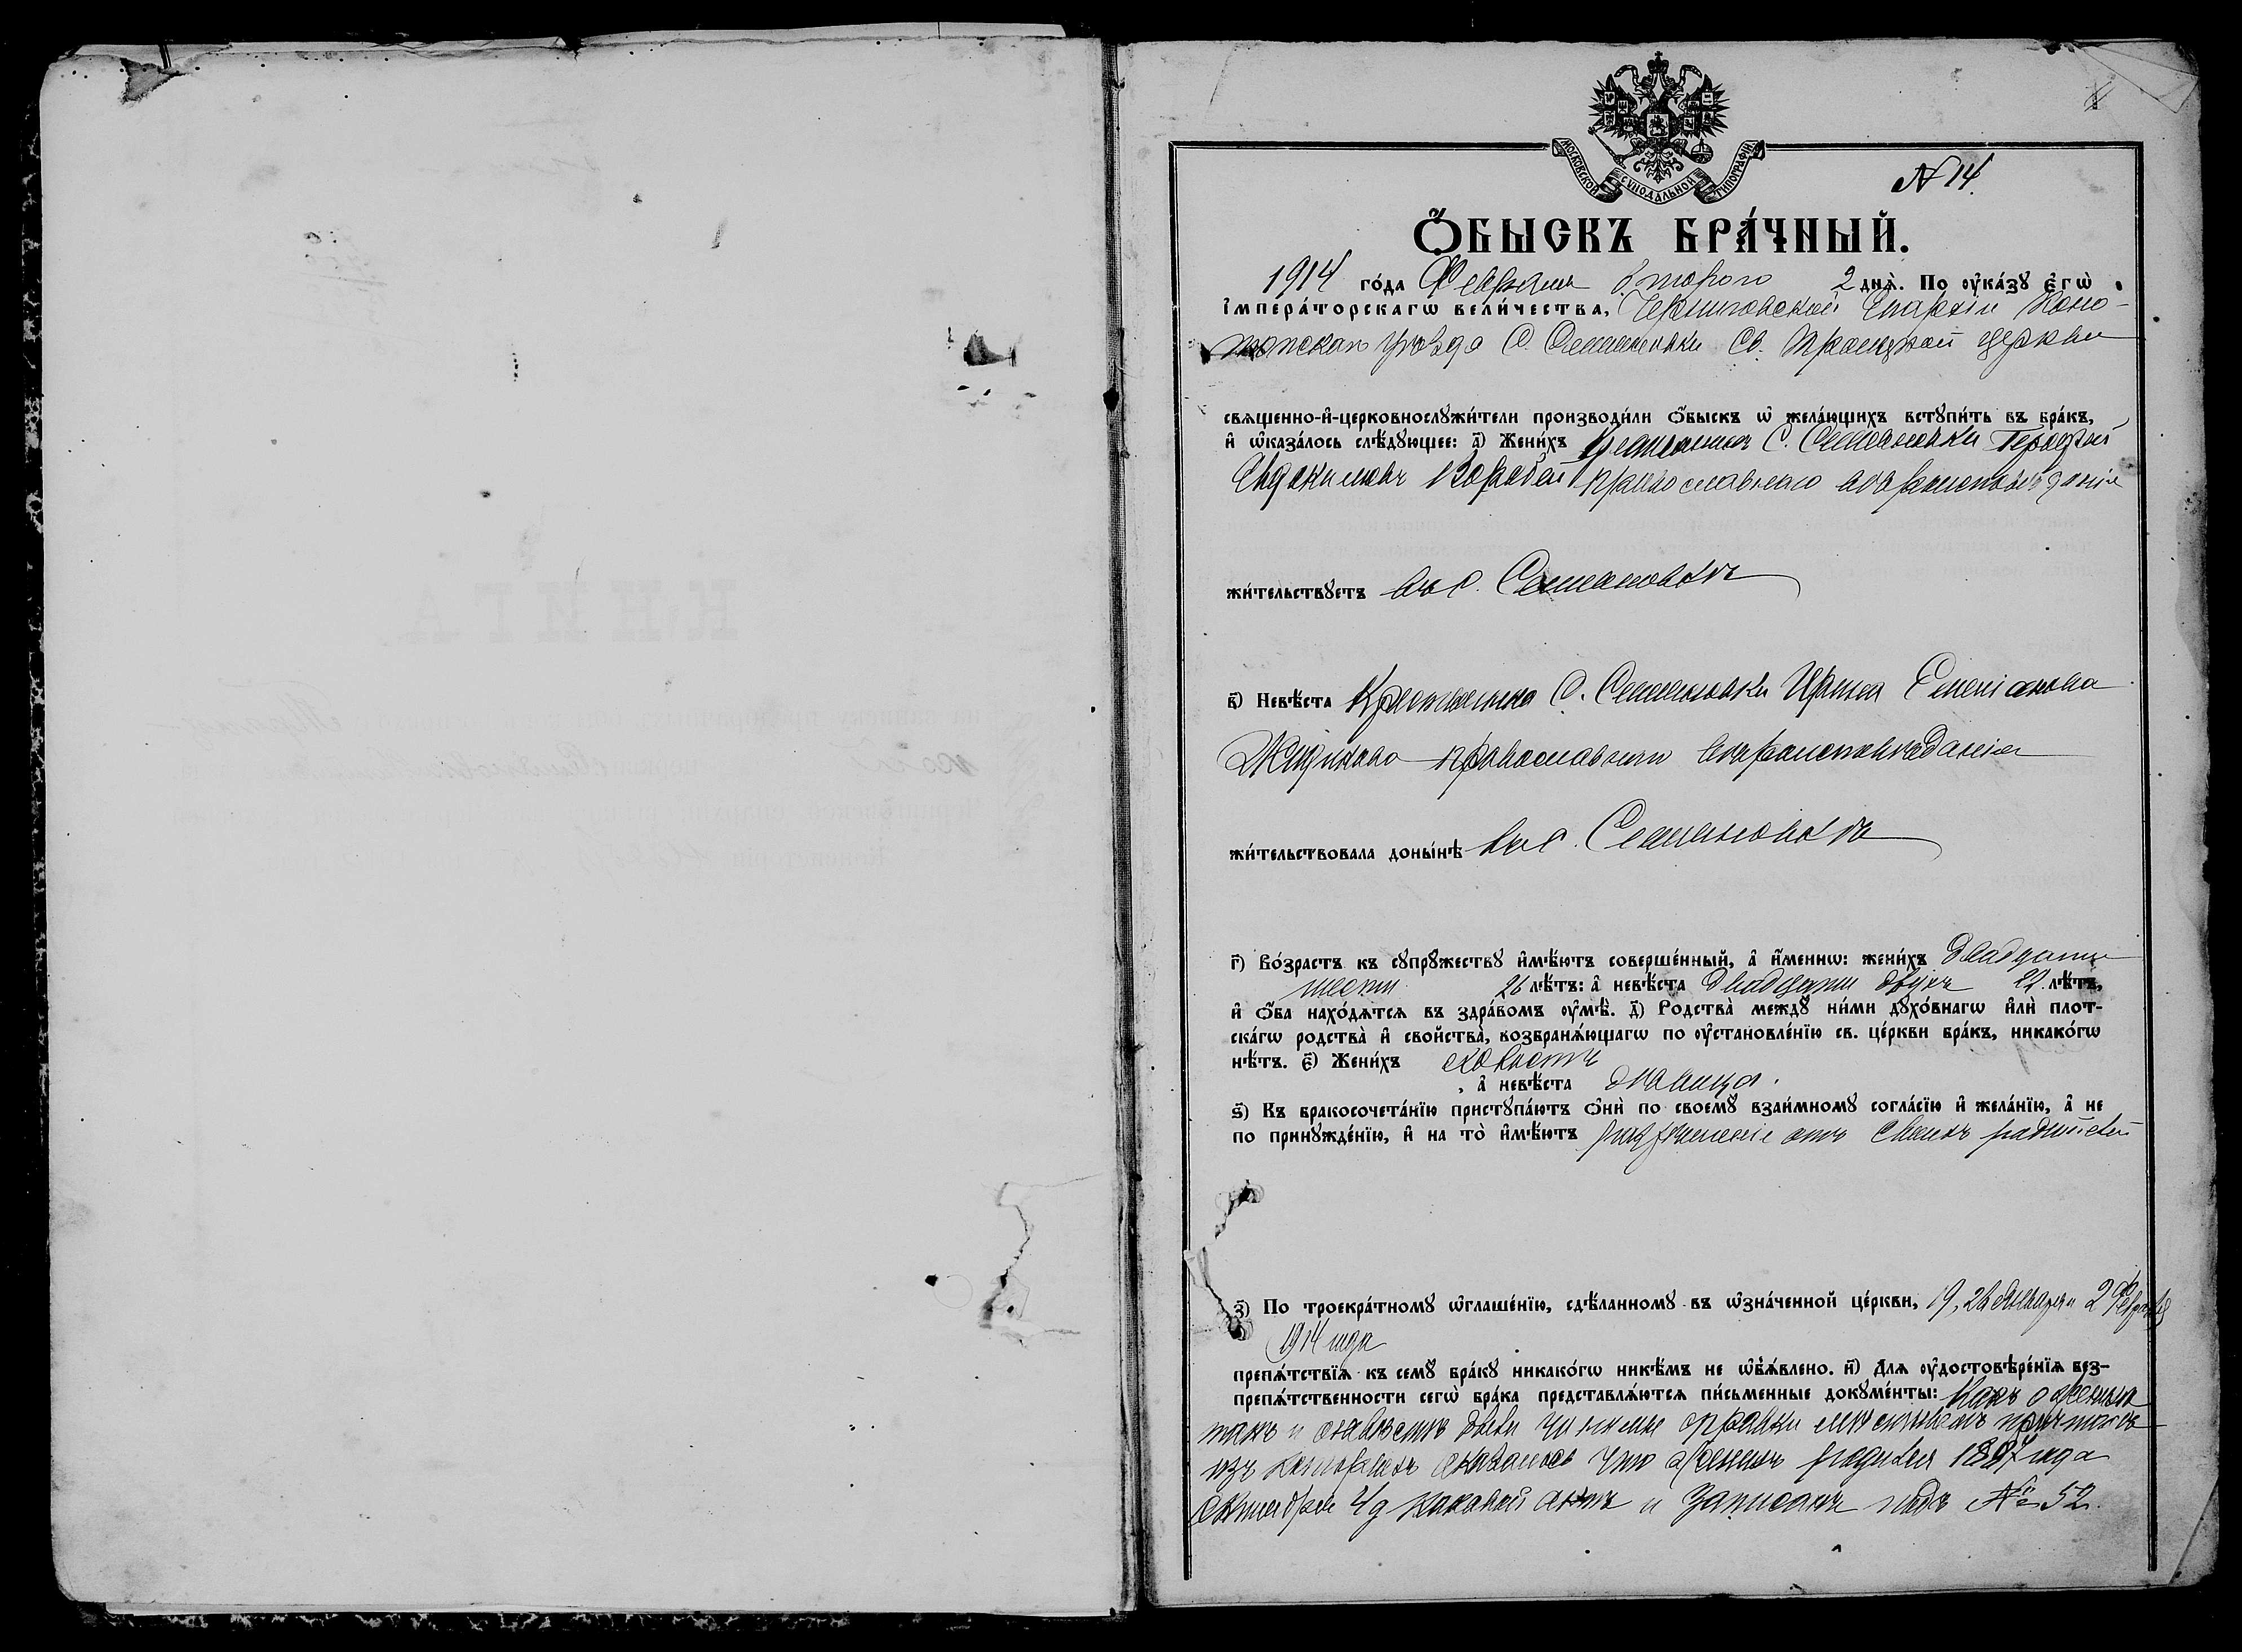 МОСКОВСКОЙ СѴНОДАЛЬНОЙ ТИПОГРАФІИ
N 14.
Ѻ҆БЫСКЪ БРА́ЧНЫЙ.
1914 го́да Февраля второго 2 днѧ̀. По ᲂу҆ка́зꙋ є҆гѡ̀
і҆мпера́торскагѡ вели́чества, Черниговской Епархіи Коно-
топскаго уѣзда С. Семеновки Св. Троицкой церкви
свѧщенно-и҆-церковнослꙋжи́тели производи́ли ѻ҆́быскъ ѡ҆ жела́ющихъ встꙋпи́ть въ бра́къ,
и҆ ѡ҆каза́лось слѣ́дꙋющее: а҃) Жени́хъ Крестьянинъ С. Семеновки
Евдокимовъ Воробей православнаго вѣроисповѣданія
жи́тельствꙋетъ въ С. Семеновкѣ
в҃) Невѣ́ста Крестьянка С. Семеновки Ирина
православнаго вѣроисповѣданія
жи́тельствовала доны́нѣ въ С. Семеновкѣ
г҃) Во́зрастъ къ сꙋпрꙋ́жествꙋ и҆мѣ́ютъ соверше́нный, а҆ и҆́меннѡ: жени́хъ двадцати
шести 26 лѣ́тъ: а҆ невѣ́ста двадцати двухъ 22 лѣ́тъ,
и҆ ѻ҆́ба нахо́дѧтсѧ въ здра́вомъ ᲂу҆мѣ̀. д҃) Родства̀ междꙋ̀ ни́ми дꙋхо́внагѡ и҆лѝ плот-
ска́гѡ родства̀ и҆ свойства̀, возбранѧ́ющагѡ по ᲂу҆становле́нїю св. це́ркви бра́къ, никако́гѡ
нѣ́тъ. є҃) Жени́хъ холостъ
, а҆ невѣ́ста дѣвица.
ѕ҃) Къ бракосочета́нїю пристꙋпа́ютъ ѻ҆нѝ по своемꙋ̀ взаи́мномꙋ согла́сїю и҆ жела́нїю, а҆ не
по принꙋжде́нїю, и҆ на то̀ и҆мѣ́ютъ разрѣшеніе отъ своихъ родителей
з҃) По троекра́тномꙋ ѡ҆глаше́нїю, сдѣ́ланномꙋ въ ѡ҆зна́ченной це́ркви, 19, 26 Января и 2 Февраля
1914 года
препѧ́тствїѧ къ семꙋ̀ бра́кꙋ никако́гѡ никѣ́мъ не ѡ҆б̾ѧ́влено. и҃) Длѧ ᲂу҆достовѣре́нїѧ без-
препѧ́тственности сегѡ̀ бра́ка представлѧ́ютсѧ пи́сьменные докꙋме́нты: Какъ о женихѣ
такъ и о невѣстѣ были чинимы справки мѣстнымъ причтомъ
изъ которыхъ оказалось что женихъ родился 1887 года
Октября 4 д каковой актъ и записанъ подъ № 52.